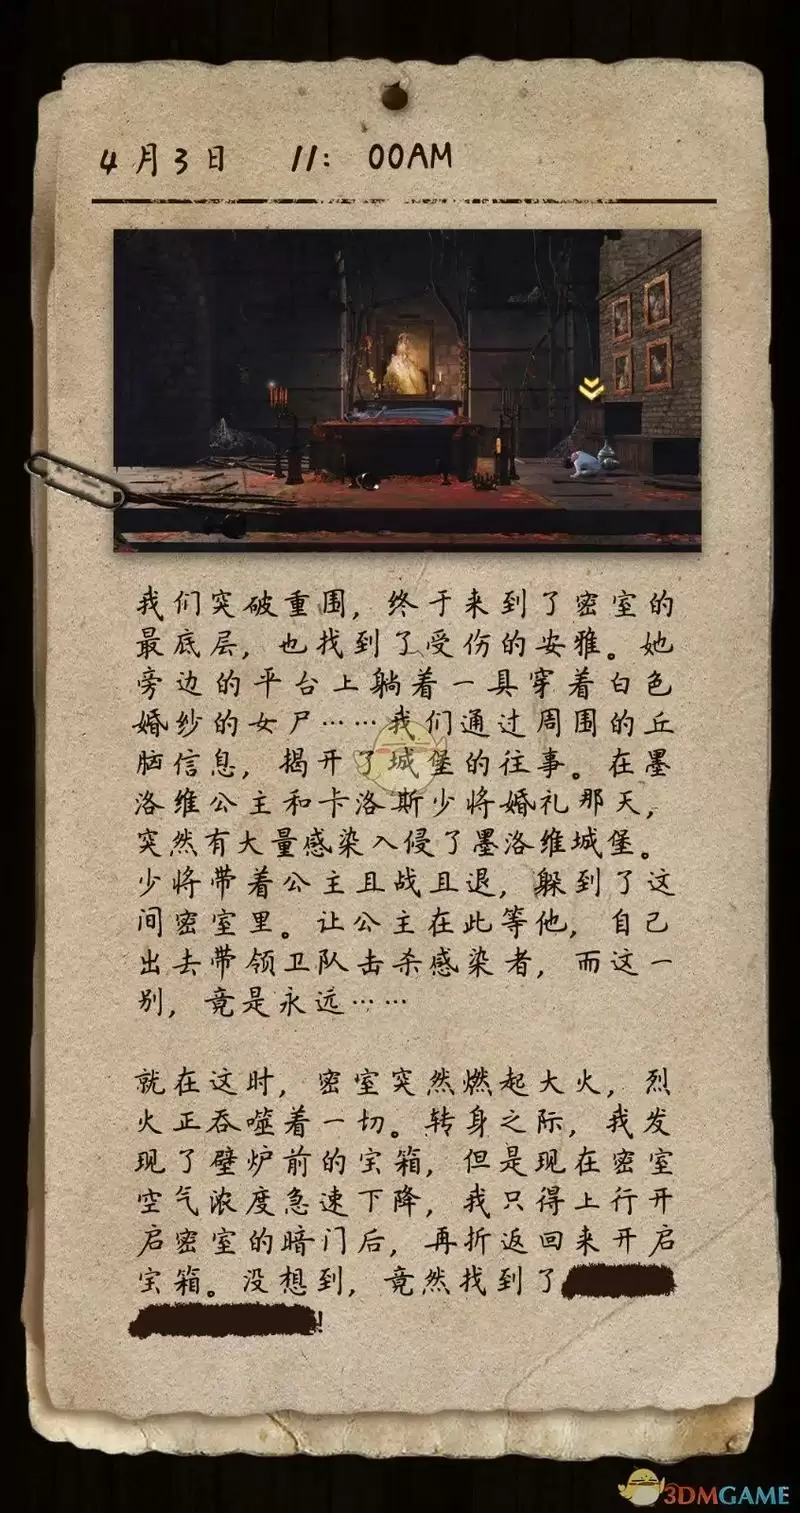 4月3日 11：00AM
我们突破重围，终于来到了密室的
最底层，也找到了受伤的安雅。她
旁边的平台上躺着一具穿着白色
婚纱的女尸……我们通过周围的丘
脑信息，揭开了城堡的往事。在墨
洛维公主和卡洛斯少将婚礼那天，
突然有大量感染入侵了墨洛维城堡。
少将带着公主且战且退，躲到了这
间密室里。让公主在此等他，自己
出去带领卫队击杀感染者，而这一
别，竟是永远……
就在这时，密室突然燃起大火，烈
火正吞噬着一切。转身之际，我发
现了壁炉前的宝箱，但是现在密室
空气浓度急速下降，我只得上行开
启密室的暗门后，再折返回来开启
宝箱。没想到，竟然找到了
！
3DMGAME